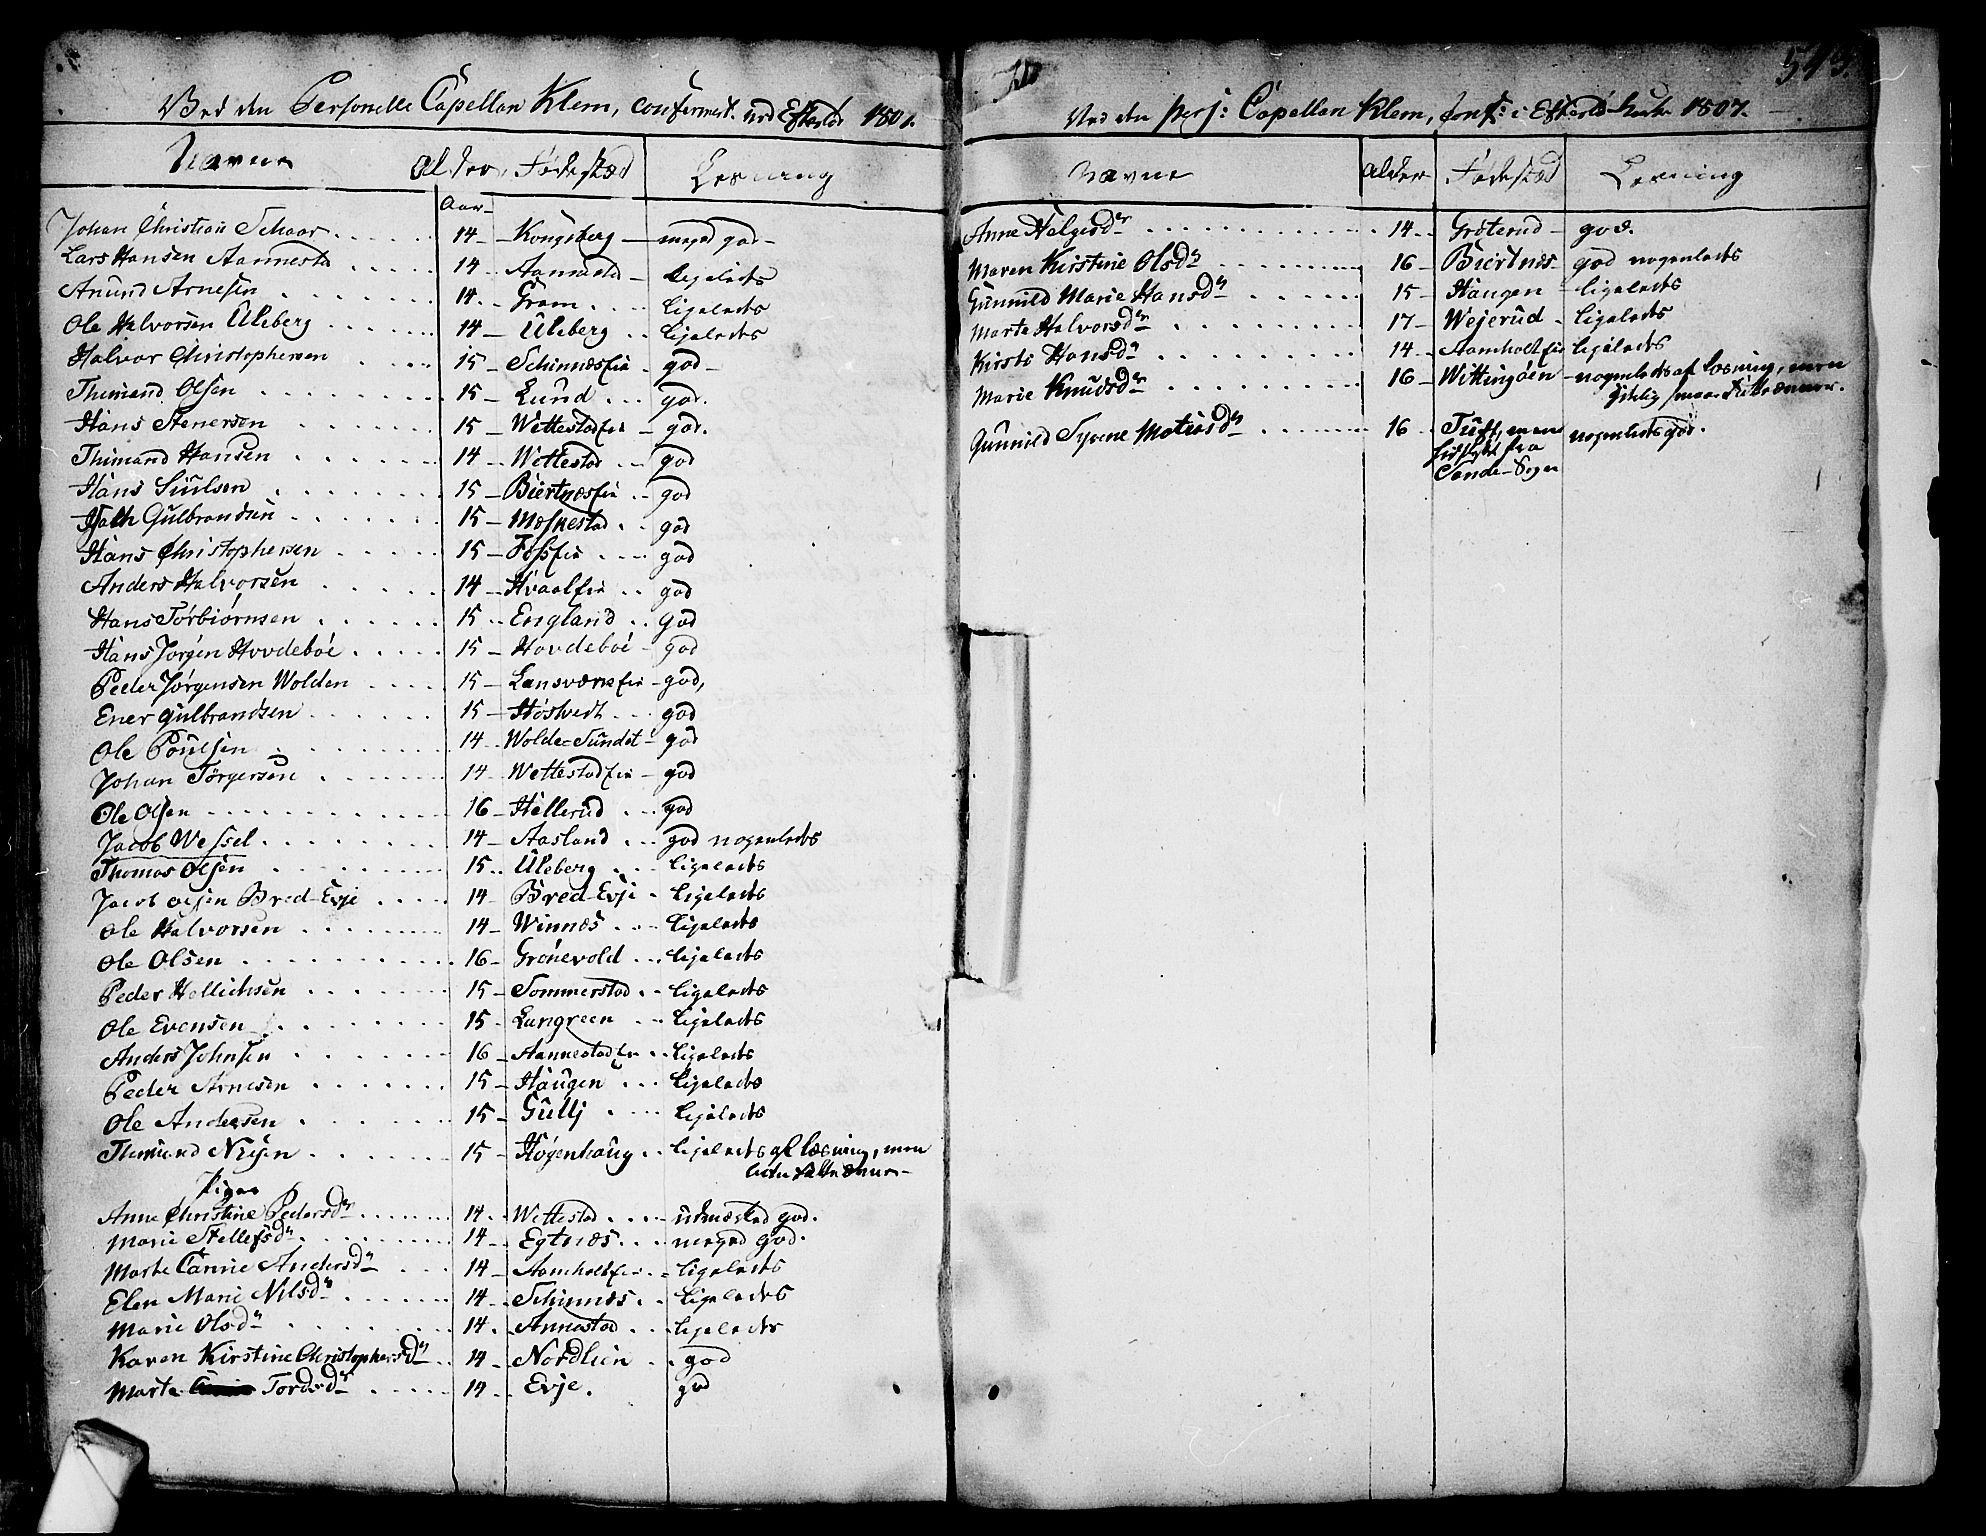 Ved den Personelle Capellan Klem, confirmert. ved Efterlod 1807.
Navne Alder. Fødestæd Læsning
Aar
Johan Christian Schaar 14 Kongsberg meget god
Lars Hansen Aannestd 14 Aannestad ligeledes
Anund Arnesen 14 Gram ligeledes
Ole Halvorsen Uleberg 14 Uleberg ligeledes
Halvor Christophersen 15 Schinnæseie god
Thimand Olsen 15 Lund god.
Hans Stenersen 15 Wettestadeie god.
Thimand Hansen 14 Wettestad god
Hans Siulsen 15 Biertnæseie god
Gulbrandsen 15 god
Hans Christophersen 15 Fosseie god
Anders Halvorsen 14 Hvaaleie god
Hans Torbiørnsen 15 England god
Hans Jørgen Hovdeboe 15 Hovdeboe god
Peder Jørgensen Wolden 15 god,
Ener Gulbrandsen 15 Høstvedt god
Ole Poulsen 14 Wolde-Sundet god
Johan Törgersen 14 Wettestadeie god
Ole Olsen 16 Hellerud god
Jacob Wessel 14 Aasland god nogenledes
Thomas Olsen 15 Uleberg ligeledes
Jacob Olsen Bred-Evje 14 Bred-Evje ligeledes
Ole Halvorsen 14 Winnæs ligeledes
Ole Olsen 16 Grönevold ligeledes
Peder Hellichsen 15 Sommerstad ligeledes
Ole Evensen 15 Langreen ligeledes
Anders Johnsen 16 Aannestadeie ligeledes
Peder Arnesen 15 Haugen ligeledes
Ole Andersen 15 Gullj ligeledes
Thimand Nilsen 15 Høgenhaug ligeledes af læsning, men
Piger
Anne Christine Pedersdr 14 Wettestad udmærket god.
Marie Stellefsdr 14 Egtnæs meget god.
Marte Carine Andersdr 14 Aamholteie ligeledes
Elen Marie Nilsdr 14 Schinnæs ligeledes
Marie Olsdr 14 Annestad ligeledes
Karen Kirstine Christophersdr 14 Nordlien god
Marte Tordsdr 14 Evje. god
543.
Ved den pers: Capellan Klem, Conf: i Efterlod Kirke 1807.
Navne Alder Fødestæd Læsning
Anne Helgesdr 14 Grøterud god.
Maren Kirstine Olsdr 16 Biertnæs god nogenledes
Gunnild Marie Hansdr 15 Haugen ligeledes
Marte Halvorsdr 17 Wejerud ligeledes
Kirsti Hansdr 14 Aamholteie ligeledes
Marie Knudsdr 16 Wittingöen nogenledes af læsning, men
Gunnild Syvene Matisdr 16 Tuft, men nogenledes god.
fra
Sende-Sogn